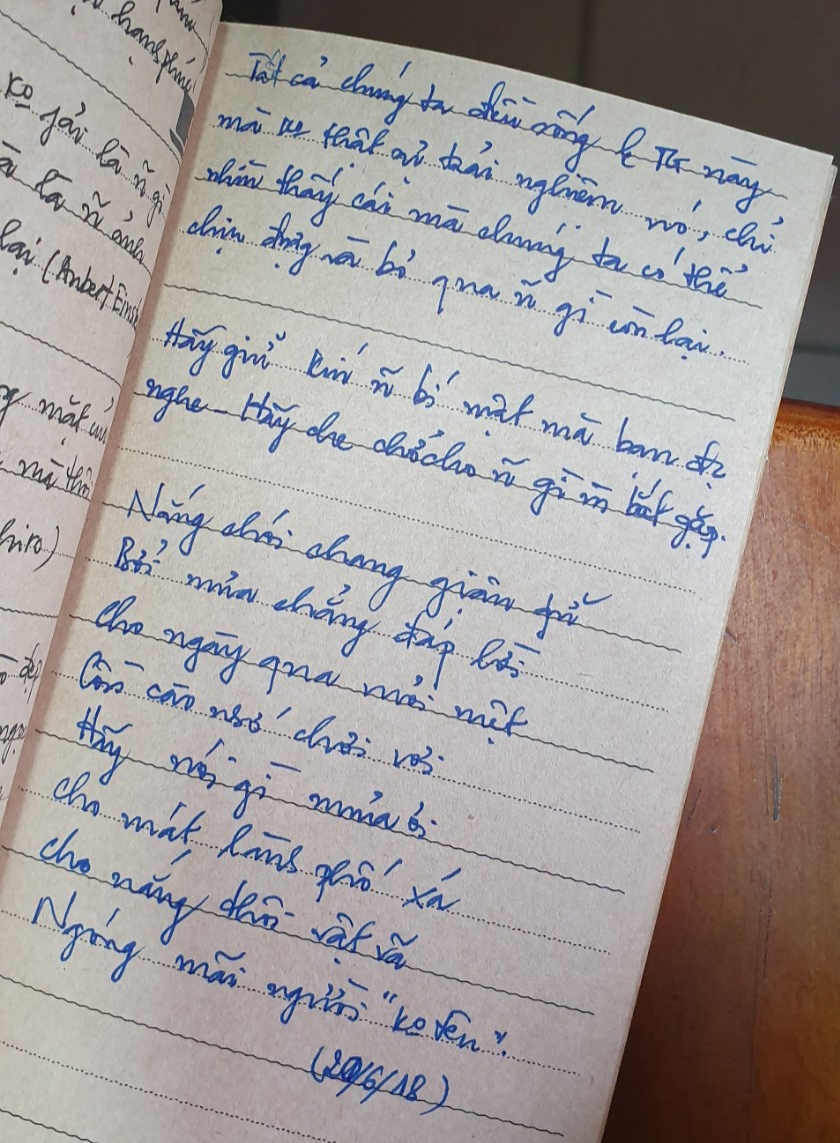 hạnh phúc
ko fải là ñ gì
là ñ ảnh
lại (Anbert Eins
mặt
mà thô
hiro)
Tất cả chúng ta đều sống ở TG này
mà ko thật sự trải nghiệm nó, chỉ
nhìn thấy cái mà chúng ta có thể
chịu đựng và bỏ qua ñ gì còn lại.
Hãy giữ kín ñ bí mật mà bạn đc
nghe - Hãy che chở cho ñ gì m bắt gặp.
Nắng chói chang giận giữ
Bởi mưa chẳng đáp lời
Cho ngày qua mỏi mệt
Cồn cào nỗi chơi vơi
Hãy nói gì mưa ơi
cho mát lành phố xá
cho nắng thôi vật vã
Ngóng mãi người "ko tên".
(20/6/18)